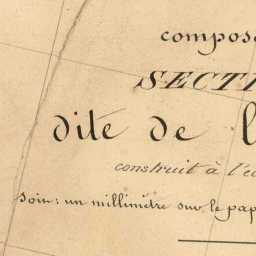 compos
SECTI
dite de l
construit à l'é
soin: un millimètre sur le pap